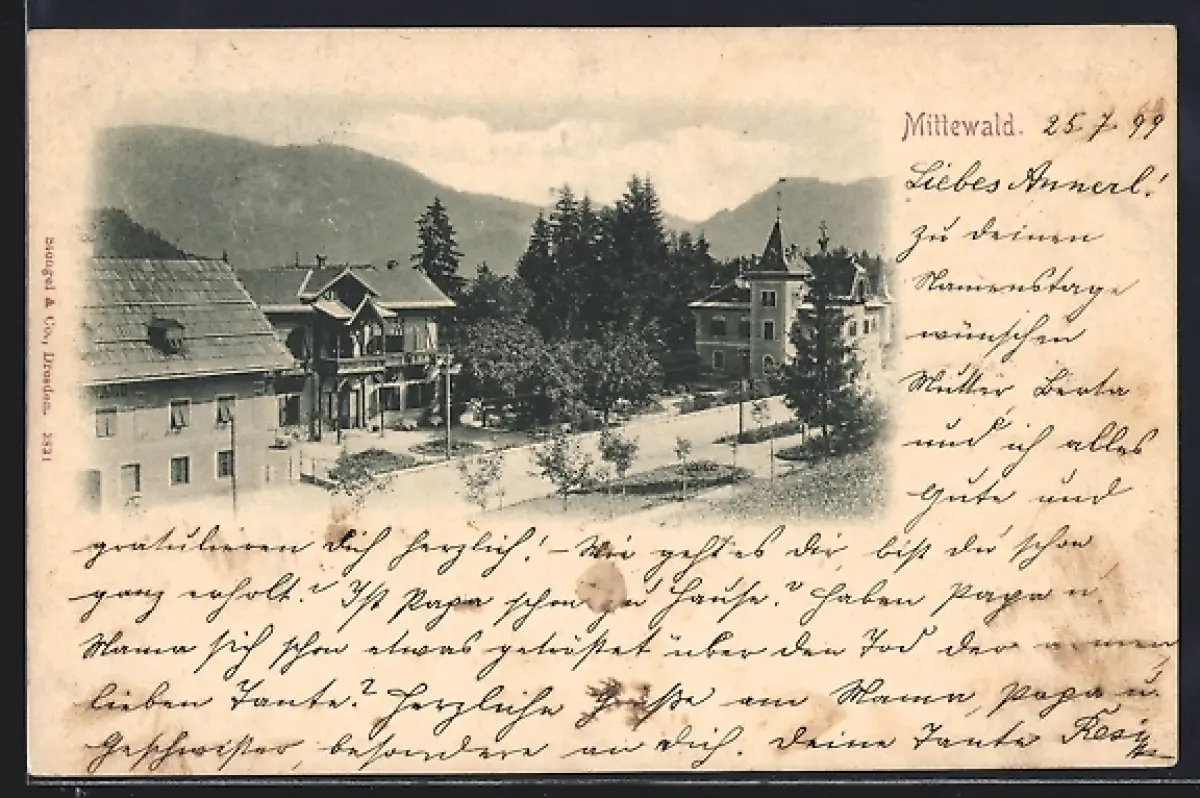 Mittewald. 25.7.99
Liebes Annerl!
zu deinen
Namenstage
wünschen
Mutter, Berta
und ich alles
Gute und
gratulieren dich herzlich! – Wie geht es dir, bist du schon
ganz erholt? Ist Papa schon zu Hause? Haben Papa u.
Mama sich schon etwas getröstet über den Tod der armen
lieben Tante? Herzliche Grüße an Mama, Papa u.
Geschwister, besondere an dich. Deine Tante Resi
Stengel & Co., Dresden. 2821